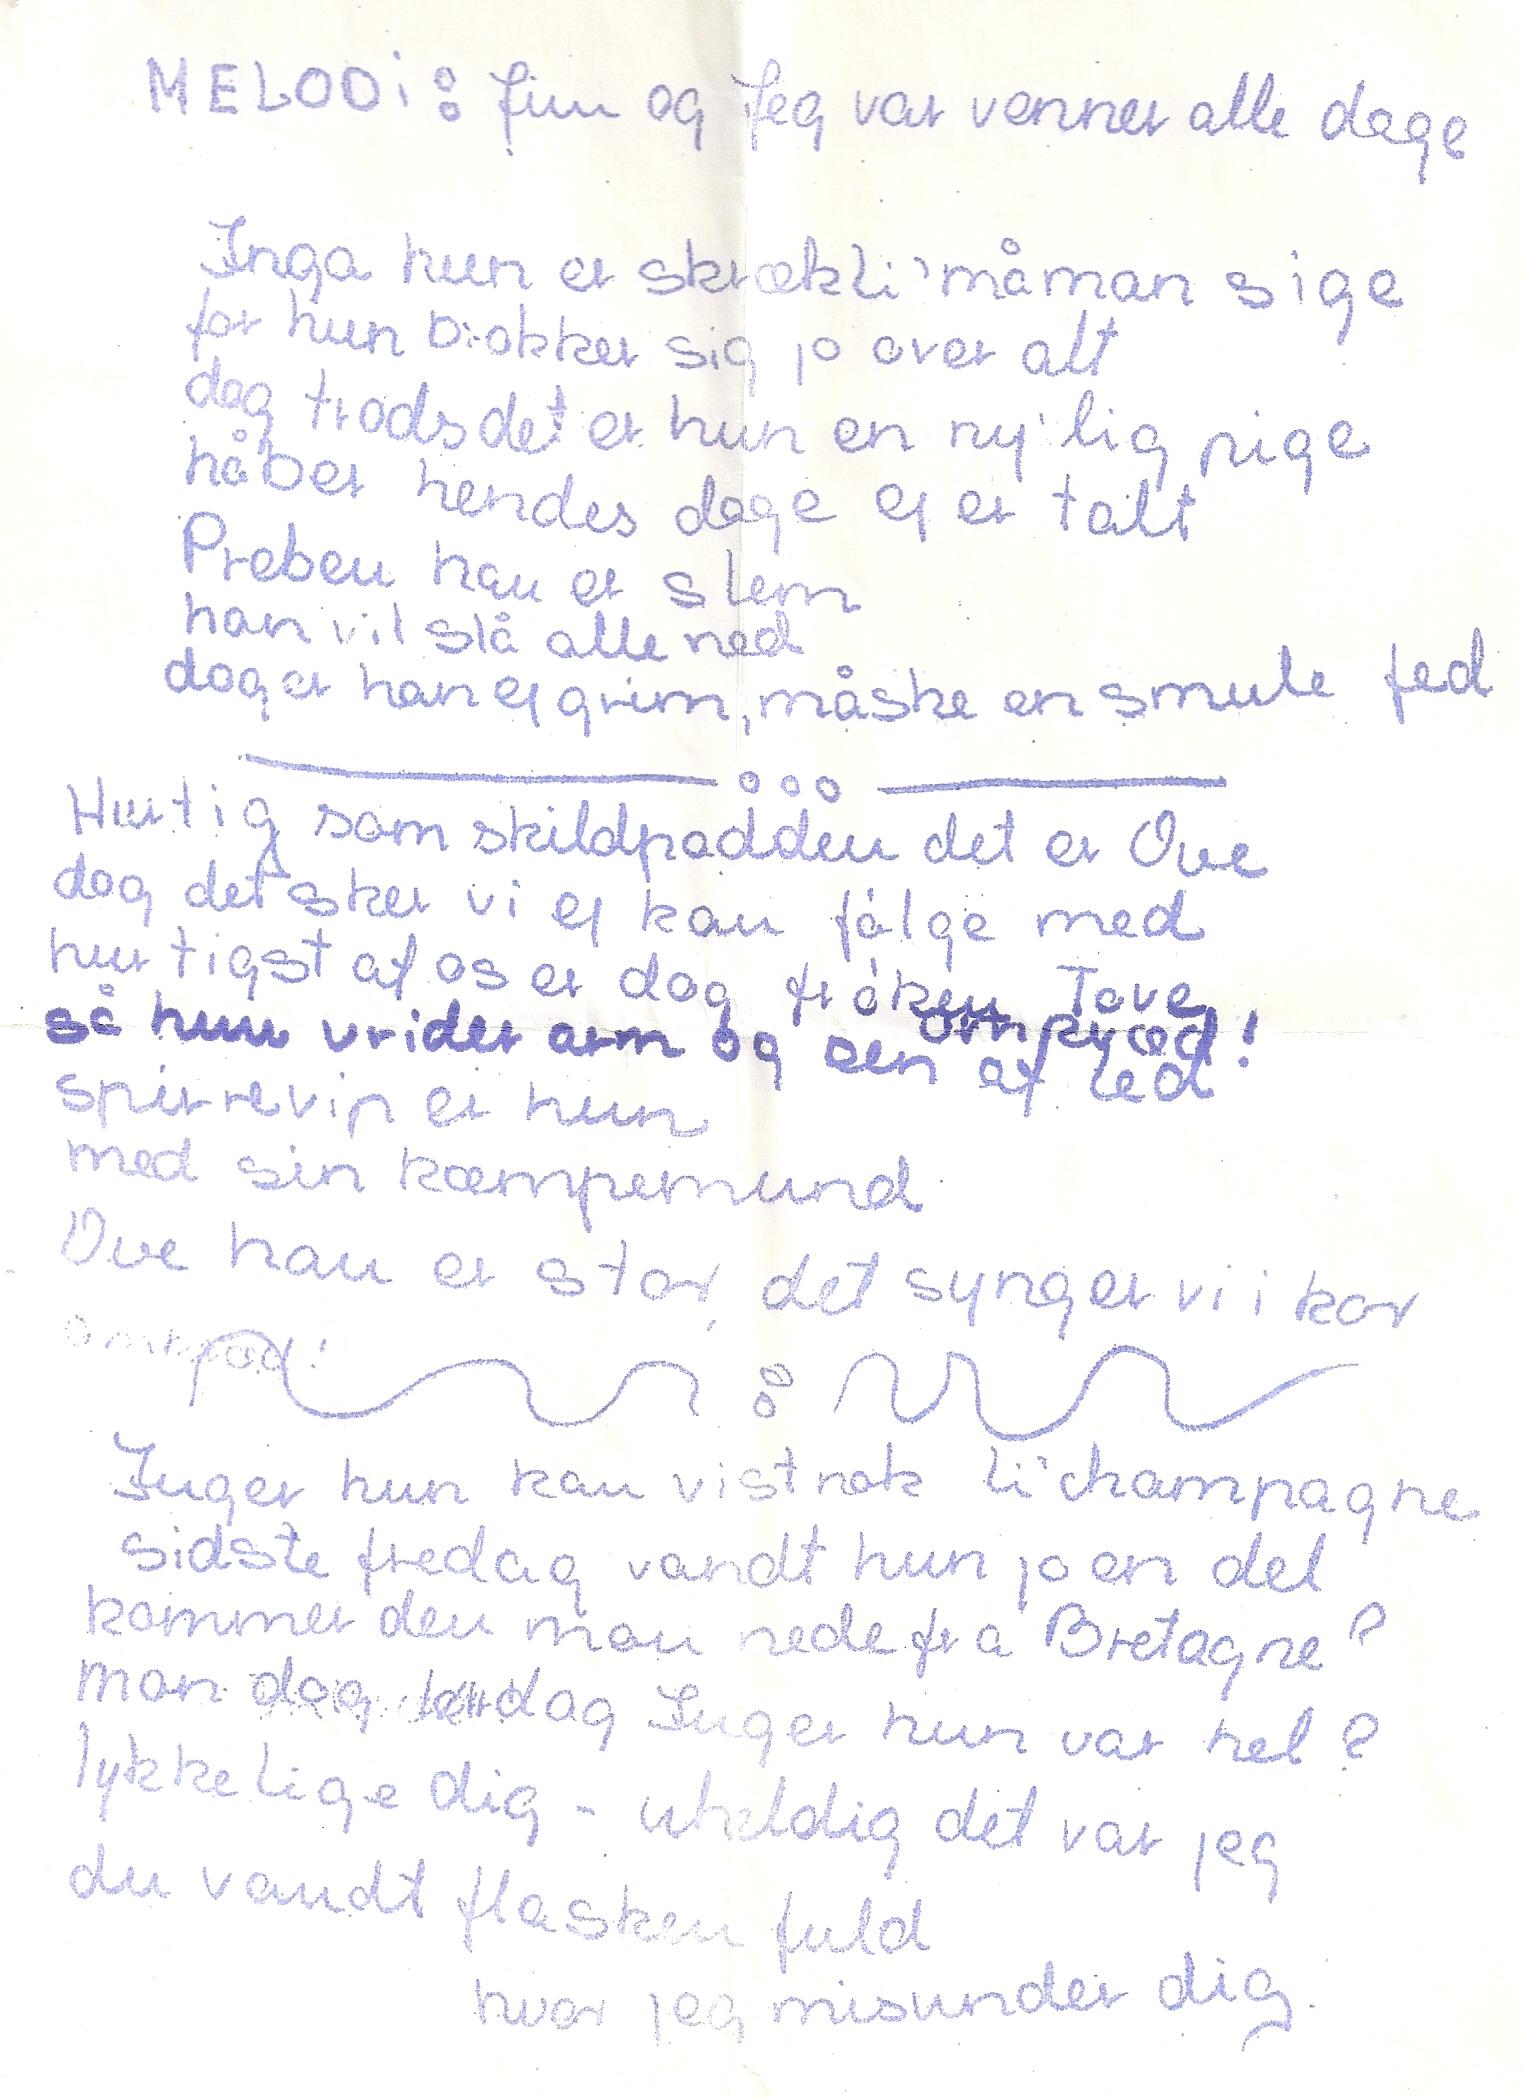 MELODi: Jim og Jeg var venner alle dage
Inga hun er skrækli' må man sige
for hun brokker sig jo over alt
dog trods det er hun en ny'lig pige
håber hendes dage ej er talt
Preben han er slem
han vil slå alle ned
dog er han ej grim, måske en smule fed
Hurtig som skildpadden det er Ove
dog det sker vi ej kan følge med
hurtigst af os er dog frøken Tove
omkvæd!
så hun vrider arm og ben af led
spirrevip er hun
med sin kæmpemund
Ove han er stor, det synger vi i kor
omkvæd!
Inger hun kan vist nok li' champagne
sidste fredag vandt hun jo en del
kommer den mon nede fra Bretagne?
mon dog lørdag Inger hun var hel?
lykkelige dig - uheldig det var jeg
du vandt flasken fuld
hvor jeg misunder dig.